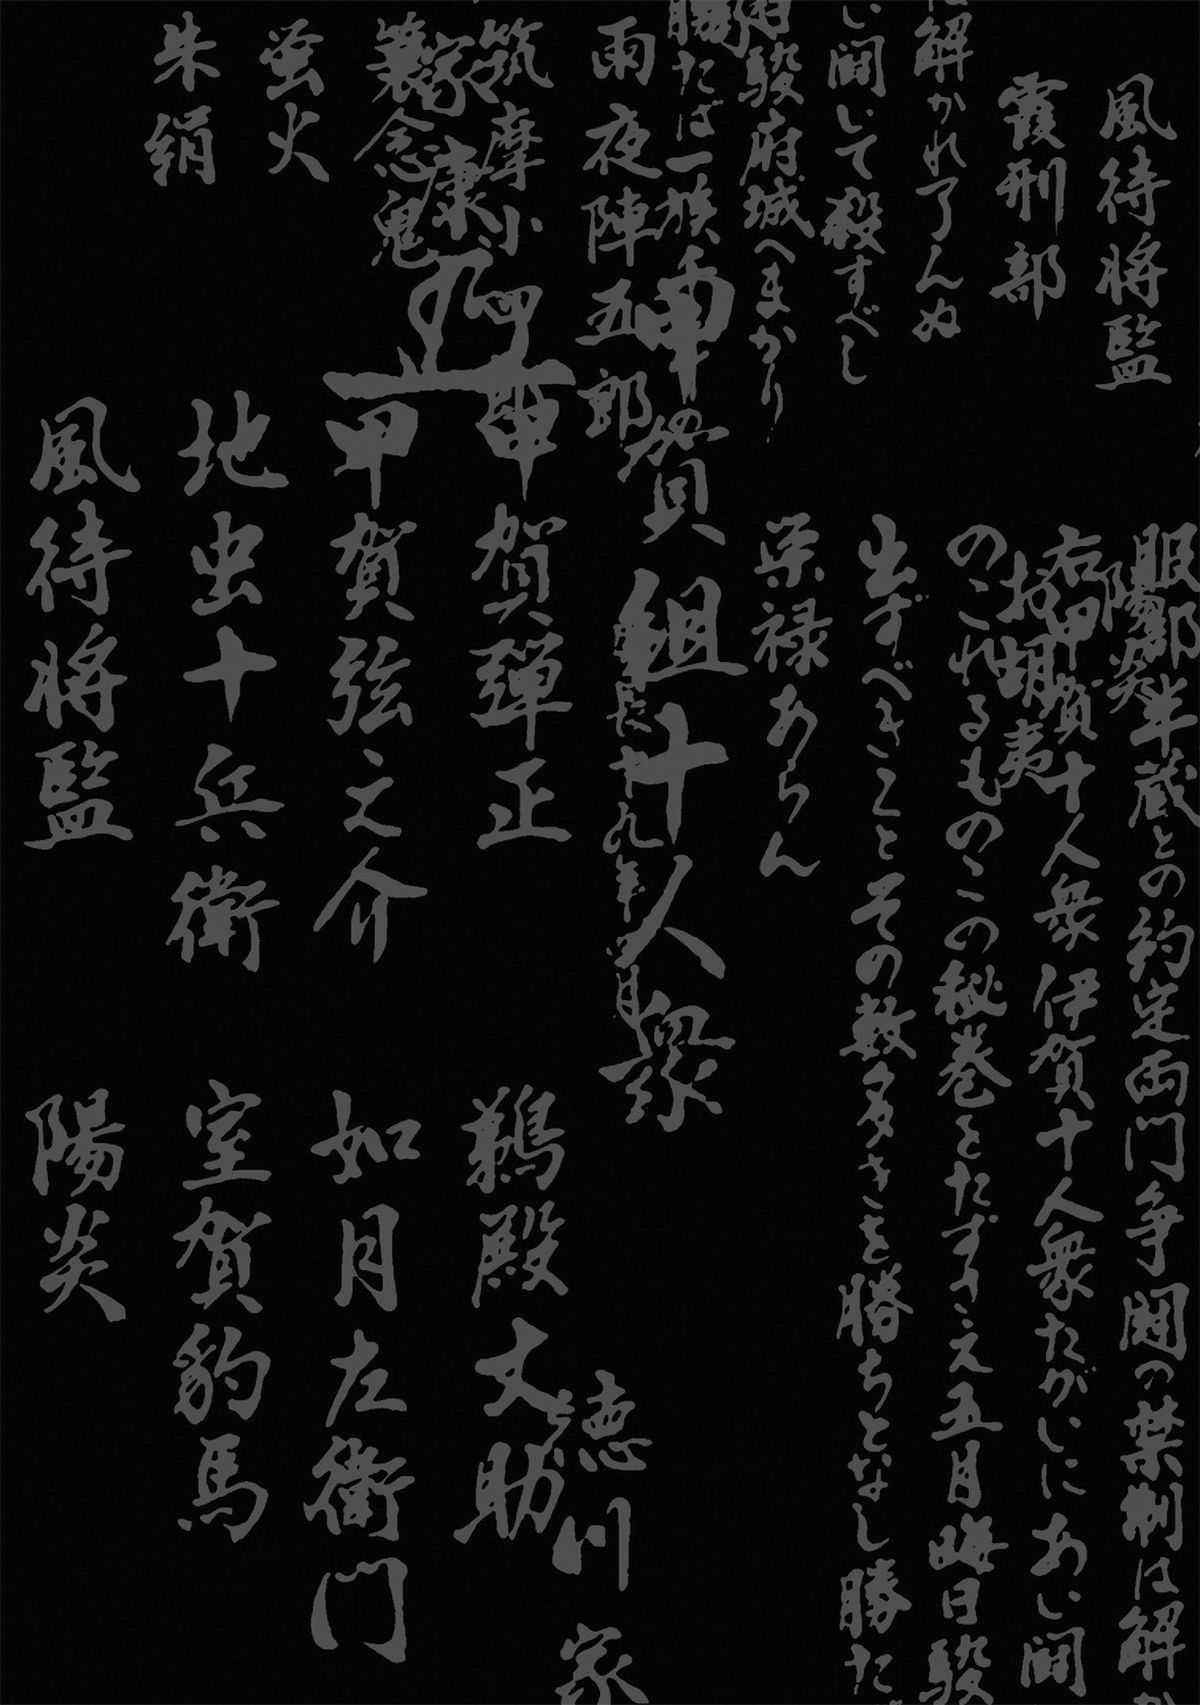 風待将監
霞刑部
に解かれ了んぬ
い闘いて殺すべし
駿府城へまかり
勝たば一族
雨夜陣五郎
筑摩小四郎
家康
蓑念鬼
蛍火
朱絹
服部半蔵との約定両門争闘の禁制は解か
陽炎
お胡夷
右甲賀十人衆伊賀十人衆たがいにあい闘
のこれるものこの秘巻をたずさえ五月晦日駿
出ずべきことその数多きを勝ちとなし勝た
栄禄あらん
甲賀組十人衆
慶長十九年四月
徳川家
甲賀弾正
甲賀弦之介
地虫十兵衛
風待将監
鵜殿丈助
如月左衛門
室賀豹馬
陽炎